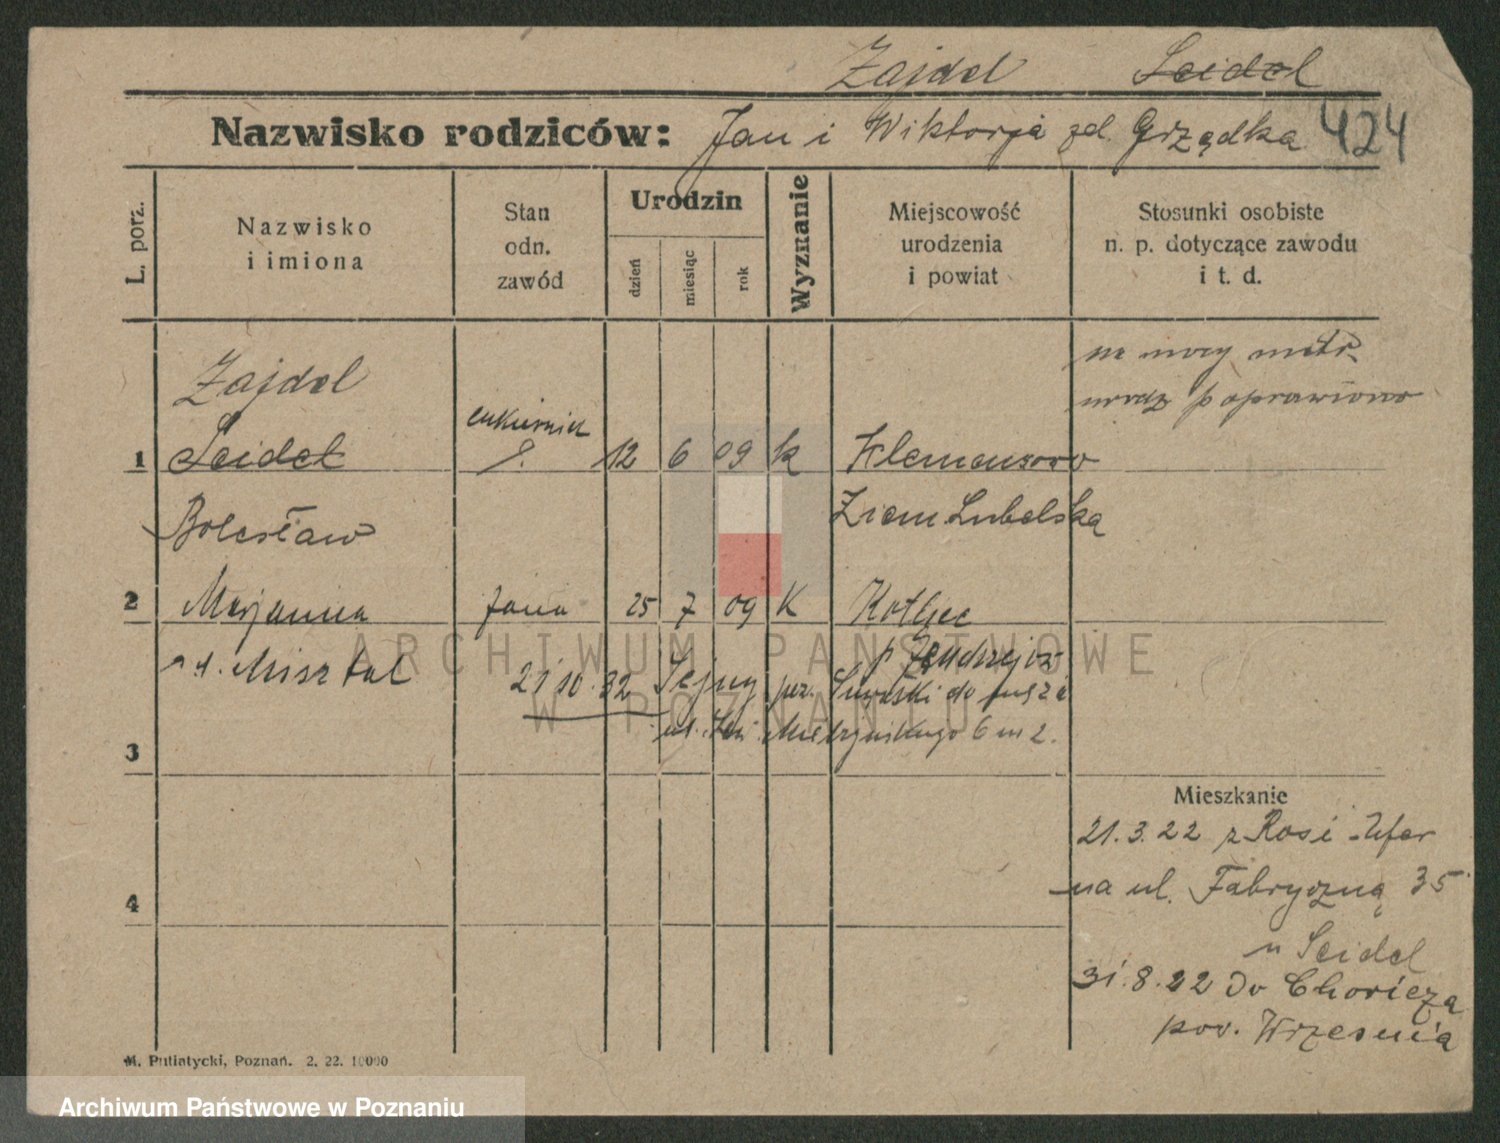 Zajdel Seidel
Nazwisko rodziców: Jan i Wiktorja zd. Grządka 424
L. porz.
Nazwisko
i imiona
Stan
odn.
zawód
Urodzin
dzień
miesiąc
rok
Wyznanie
Miejscowość
urodzenia
i powiat
Stosunki osobiste
n. p. dotyczące zawodu
i t. d.
na mocy metr.
urodz poprawiono
Zajdel
cukiernik
1 Seidel 12 6 09 k Klemensowo
Bolesław Ziem Lubelska
2 Marjanna żona 25 7 09 K Kotljec
p Jendrzejów
Misztal 21 10 32 Sejny pw. Suwalski do męża
ul. Mielżyńskiego 6 m 2.
3
Mieszkanie
21.3.22 z Rosi Ufer
na ul. Fabryczną 35
4
u Seidel
31.8.22 Do Choricza
pow. Wrzesnia
M. Putiatycki, Poznań. 2. 22. 10000
ARCHIWUM PAŃSTWOWE
W POZNANIU
Archiwum Państwowe w Poznaniu